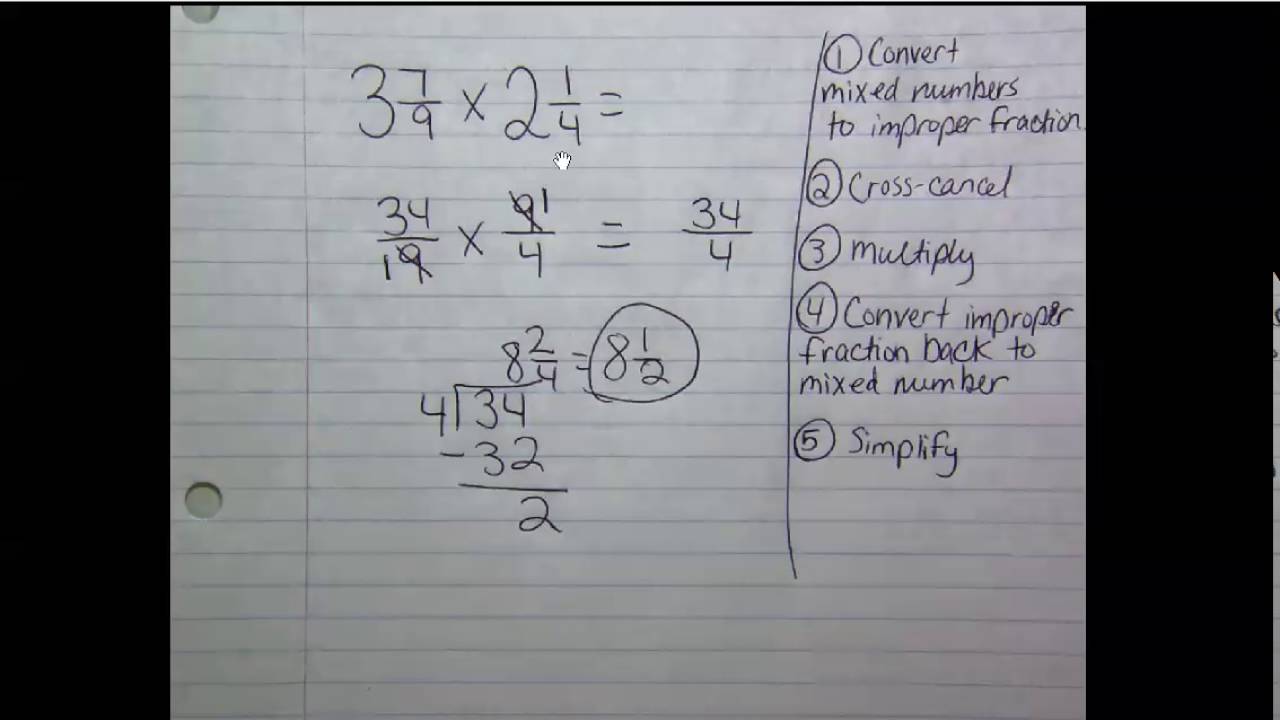 3 7/9 × 2 1/4 =
34/9 1 × 9/4 1 = 34/4
8 2/4 = 8 1/2
4 34
- 32
2
① Convert
mixed numbers
to improper fraction
② Cross-cancel
③ Multiply
④ Convert improper
fraction back to
mixed number
⑤ Simplify